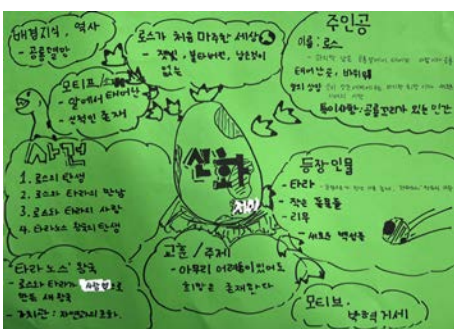 배경지식, 역사
- 공룡멸망
로스가 처음 마주한 세상
- 잿빛, 불타버린, 남은것이
없는
주인공
이름 : 로스
태어난 곳, 바위
특이사항 : 공룡꼬리가 있는 인간
모티프/
- 알에서 태어난
- 신적인 존재
신화
사건
1. 로스의 탄생
2. 로스와 타라의 만남
3. 로스와 타라의 사랑
4. 타라노스 왕국의 탄생
등장인물
- 타라
- 작은 동물들
- 리무
- 새로운 백성들
"타라노스" 왕국
- 로스와 타라가 사랑으로
만든 새 왕국
- 가치관 : 자연과의 조화.
교훈/주제
- 아무리 어려움이 있어도
희망은 존재한다
모티브.